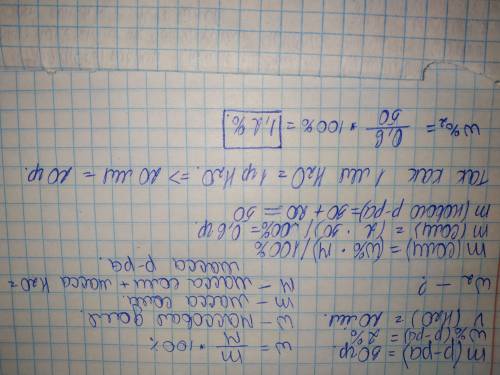 m(р-ра) = 30 гр. w = m/M * 100%
w%(р-ра) = 2% w - массовая доля.
V(H2O) = 20 мл. m - масса соли
w2 - ? M - масса соли + масса H2O =
масса р-ра.
m(соли) = (w% * M) / 100%
m(соли) = (2 * 30) / 100% = 0,6 гр
m(нового р-ра) = 30 + 20 = 50
Так как 1 мл H2O = 1 гр H2O. => 20 мл = 20 гр.
w%2 = 0,6/50 * 100% = 1,2%.